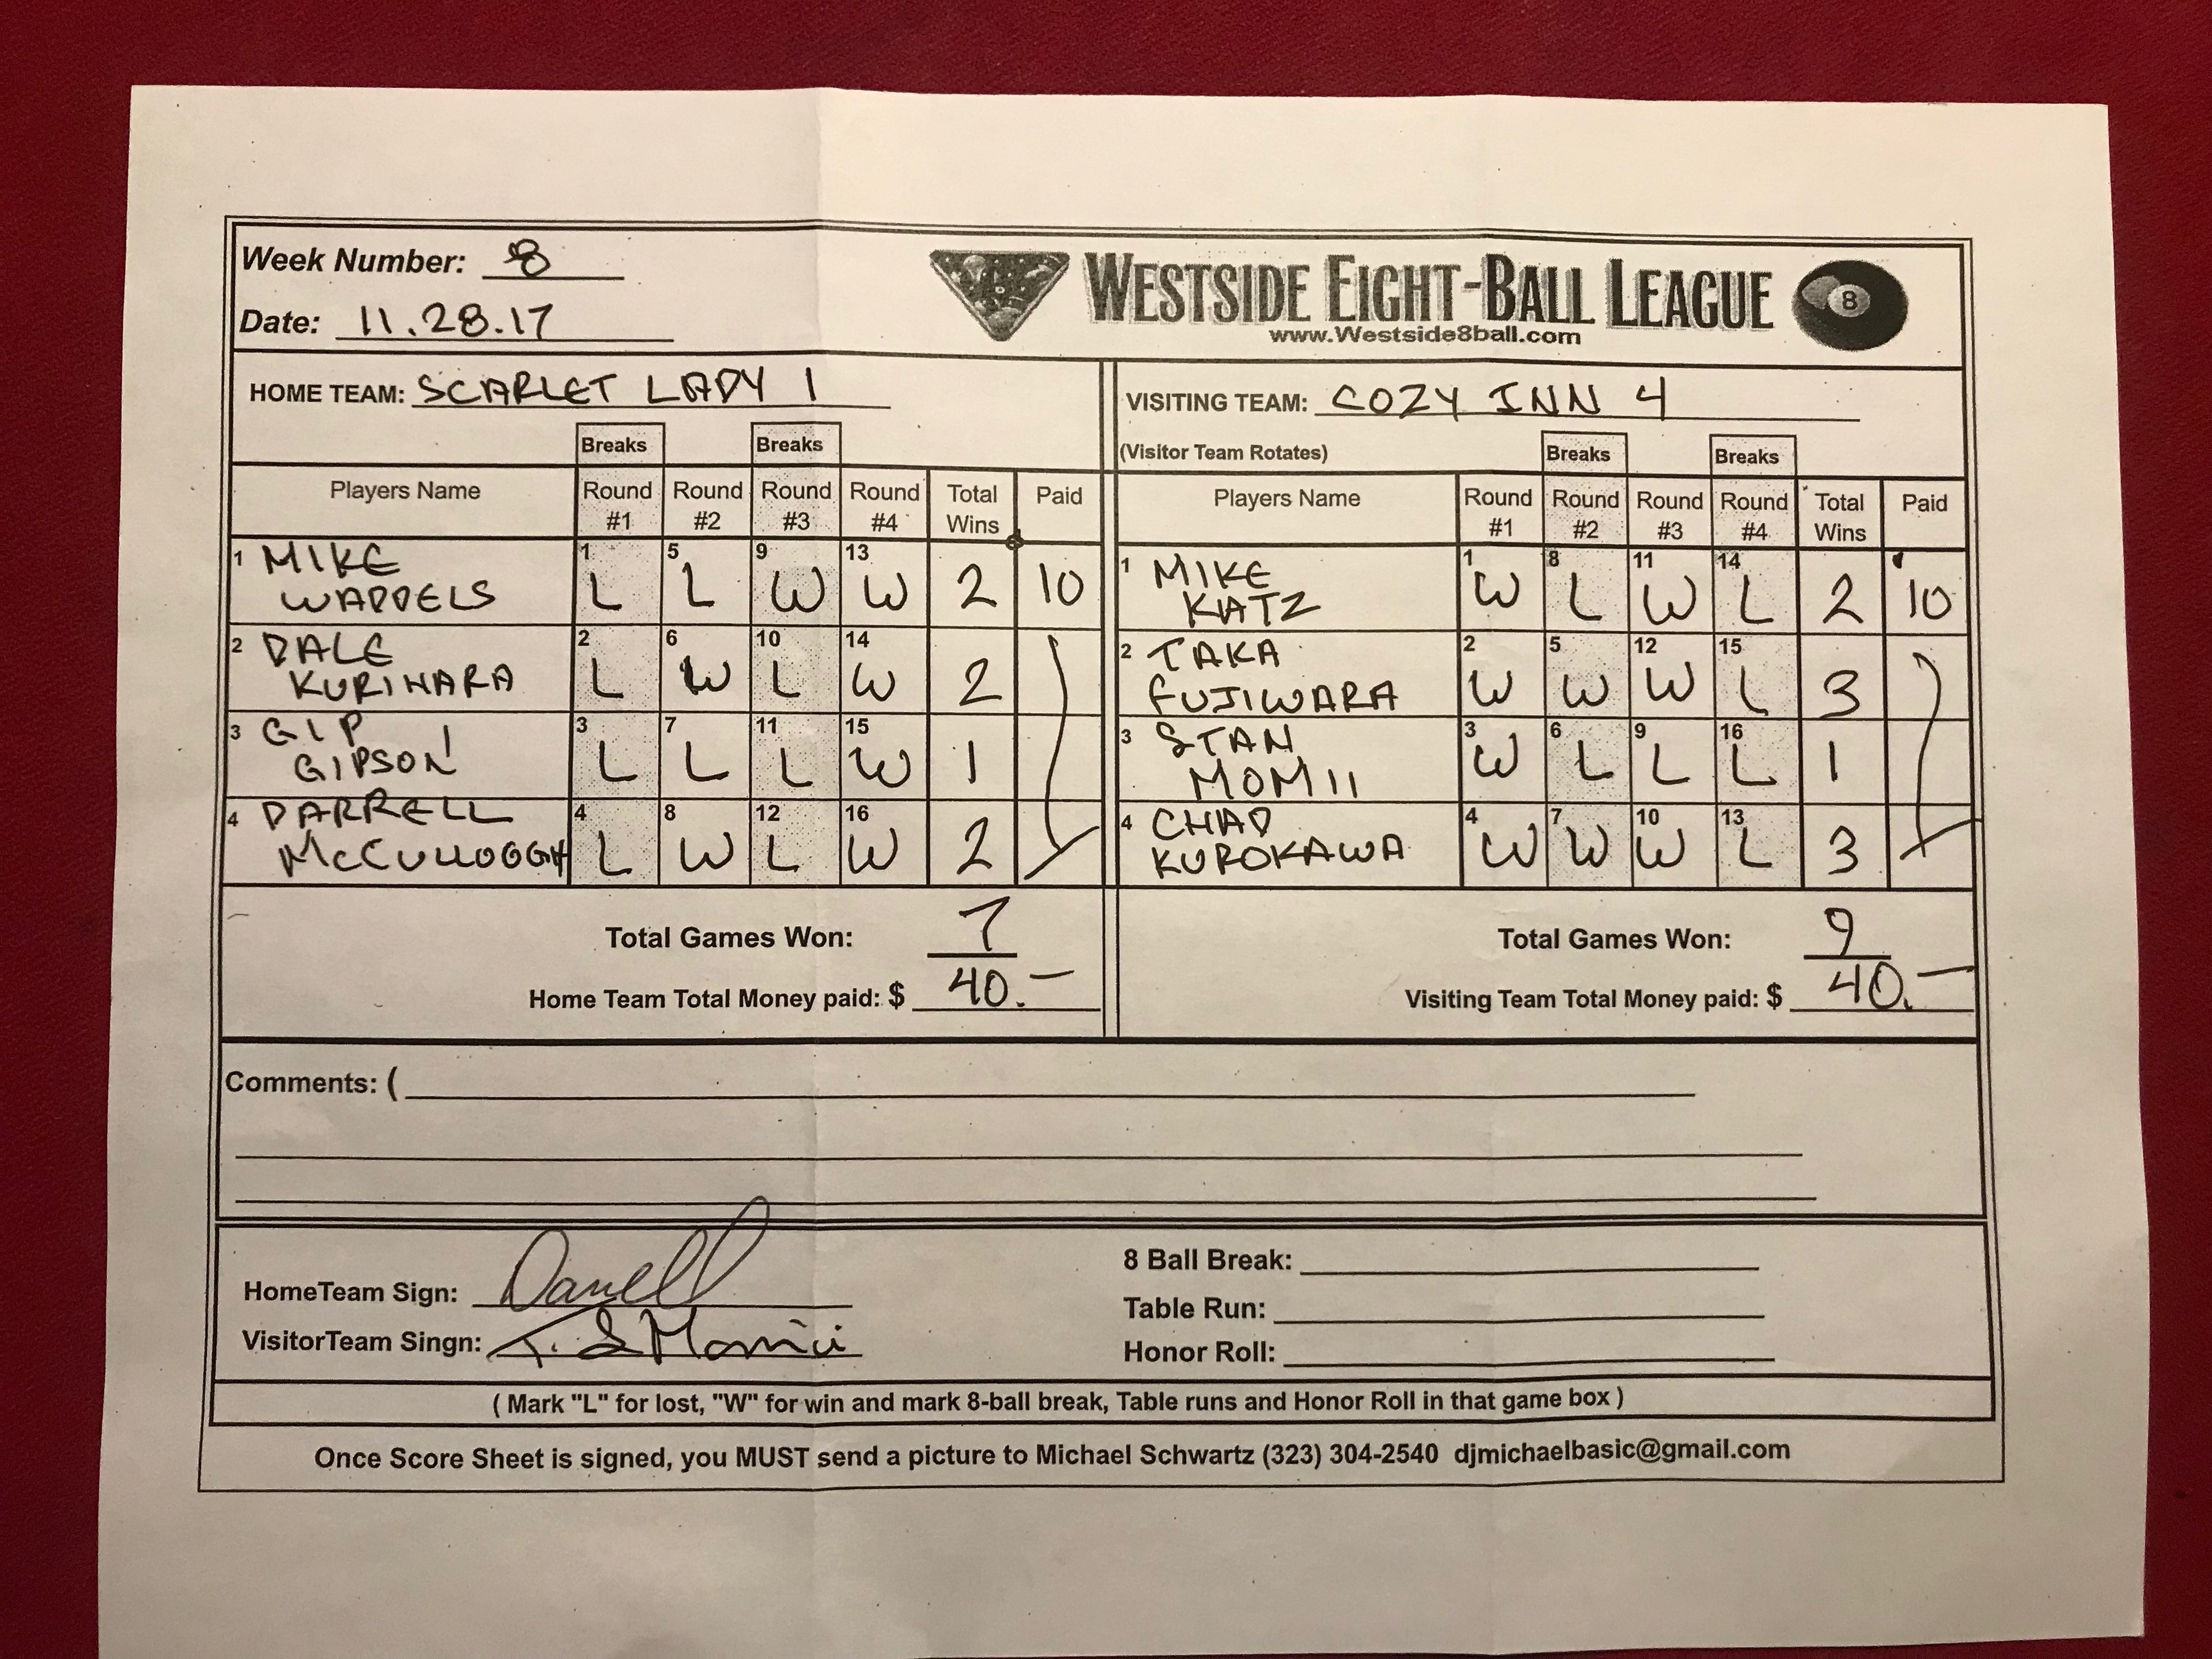 Week Number: 8
Date: 11.28.17
WESTSIDE EIGHT-BALL LEAGUE
8
www.Westside8ball.com
HOME TEAM: SCARLET LADY 1
VISITING TEAM: COZY INN 4
Breaks Breaks
(Visitor Team Rotates) Breaks Breaks
Players Name Round #1 Round #2 Round #3 Round #4 Total Wins Paid
Players Name Round #1 Round #2 Round #3 Round #4 Total Wins Paid
1 MIKE WADDELS 1 L 5 L 9 W 13 W 2 10
1 MIKE KATZ 1 W 8 L 11 W 14 L 2 10
2 DALE KURIHARA 2 L 6 W 10 L 14 W 2
2 TAKA FUJIWARA 2 W 5 W 12 W 15 L 3
3 GIP GIPSON 3 L 7 L 11 L 15 W 1
3 STAN MOMII 3 W 6 L 9 L 16 L 1
4 DARRELL McCULLOGGH 4 L 8 W 12 L 16 W 2
4 CHAD KUROKAWA 4 W 7 W 10 W 13 L 3
Total Games Won: 7
Total Games Won: 9
Home Team Total Money paid: $ 40.—
Visiting Team Total Money paid: $ 40.—
Comments: (
HomeTeam Sign: Darrell
VisitorTeam Singn: T. S Momii
8 Ball Break:
Table Run:
Honor Roll:
( Mark "L" for lost, "W" for win and mark 8-ball break, Table runs and Honor Roll in that game box )
Once Score Sheet is signed, you MUST send a picture to Michael Schwartz (323) 304-2540 djmichaelbasic@gmail.com